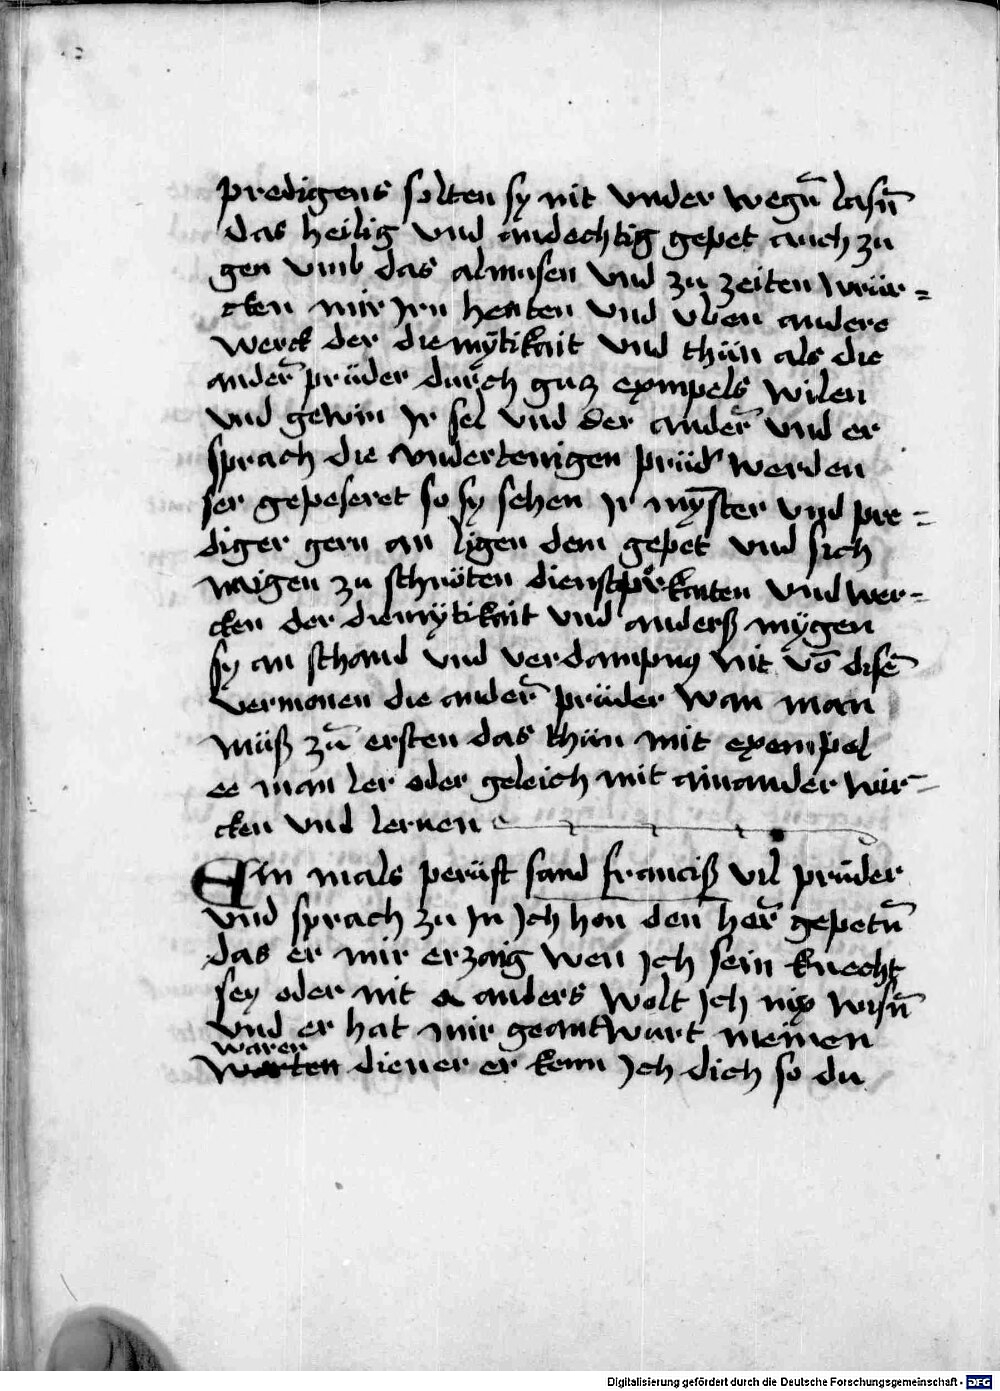 predigens solten sy nit vnder wegn̄ lasn̄
das heilig vnd andechtig gepet auch zu
gen vmb das almusen vnd zu zeiten wür=
cken mir Jrn henten vnd vben andere
werck der diemütikait vnd thün als die
ander̄ prüder durch gutz exmpels wilen
vnd gewin Jr sel vnd der ander̄ vnd er
sprach die vndertenigen prüd' werden
ser gepeseret so sy sehen Jr myster vnd pre=
diger gern an ligen dem gepet vnd sich
naigen zu schnöten dienstperkaiten vnd wer=
cken der diemÿtikait vnd anderß mÿgen
sy an schand vnd verdampnus nit vō disē
vermonen die ander̄ prüder wan man
müß zū ersten das thün mit exempel
ee man ler oder geleich mit ainander wir
cken vnd lernen
Ein mals perüft sand franciß vil prüder
vnd sprach zu Jn Jch hon den her̄ gepetn̄
das er mir erzaig wen Jch sein knecht
sey oder nit anders wolt Jch nix wisn̄
vnd er hat mir geantwart meinen
waren
diener er kenn Jch dich so du
Digitalisierung gefördert durch die Deutsche Forschungsgemeinschaft - DFG